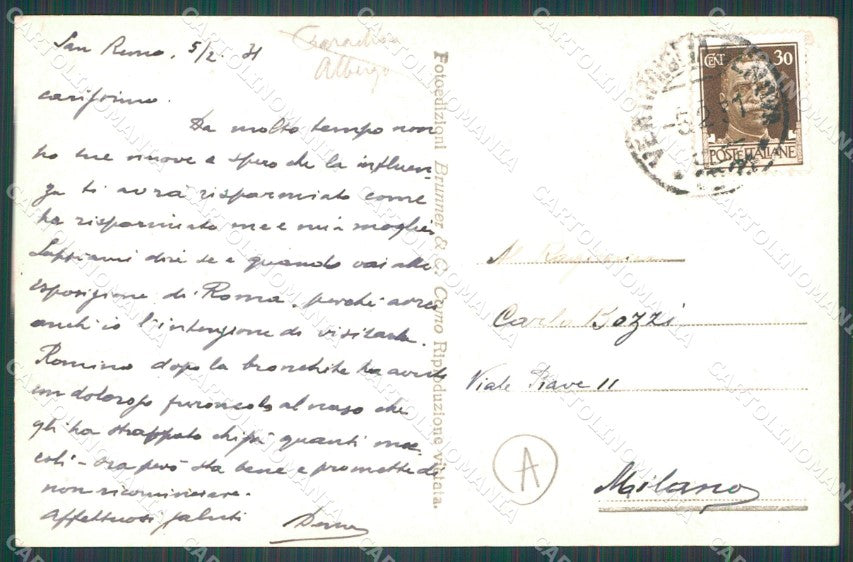 San Remo, 5/2. 31
carissimo.
Da molto tempo non
ho tue nuove e spero che la influen
za ti avrà risparmiato come
ha risparmiato me e mia moglie.
Sappiami dire se e quando vai alla
esposizione di Roma, perché avrei
anch'io l'intenzione di visitarla.
Romino dopo la bronchite ha avuto
un doloroso furoncolo al naso che
gli ha strappato chissà quanti moc
coli - ora però sta bene e promette di
non ricominciare.
affettuosi saluti
Albergo
Fotoedizioni Brunner & C. Como Riproduzione vietata.
CENT 30
POSTE ITALIANE
VENTIMIGLIA
Carlo Bozzi
Viale Piave 11
A
Milano
CARTOLINOMANIA